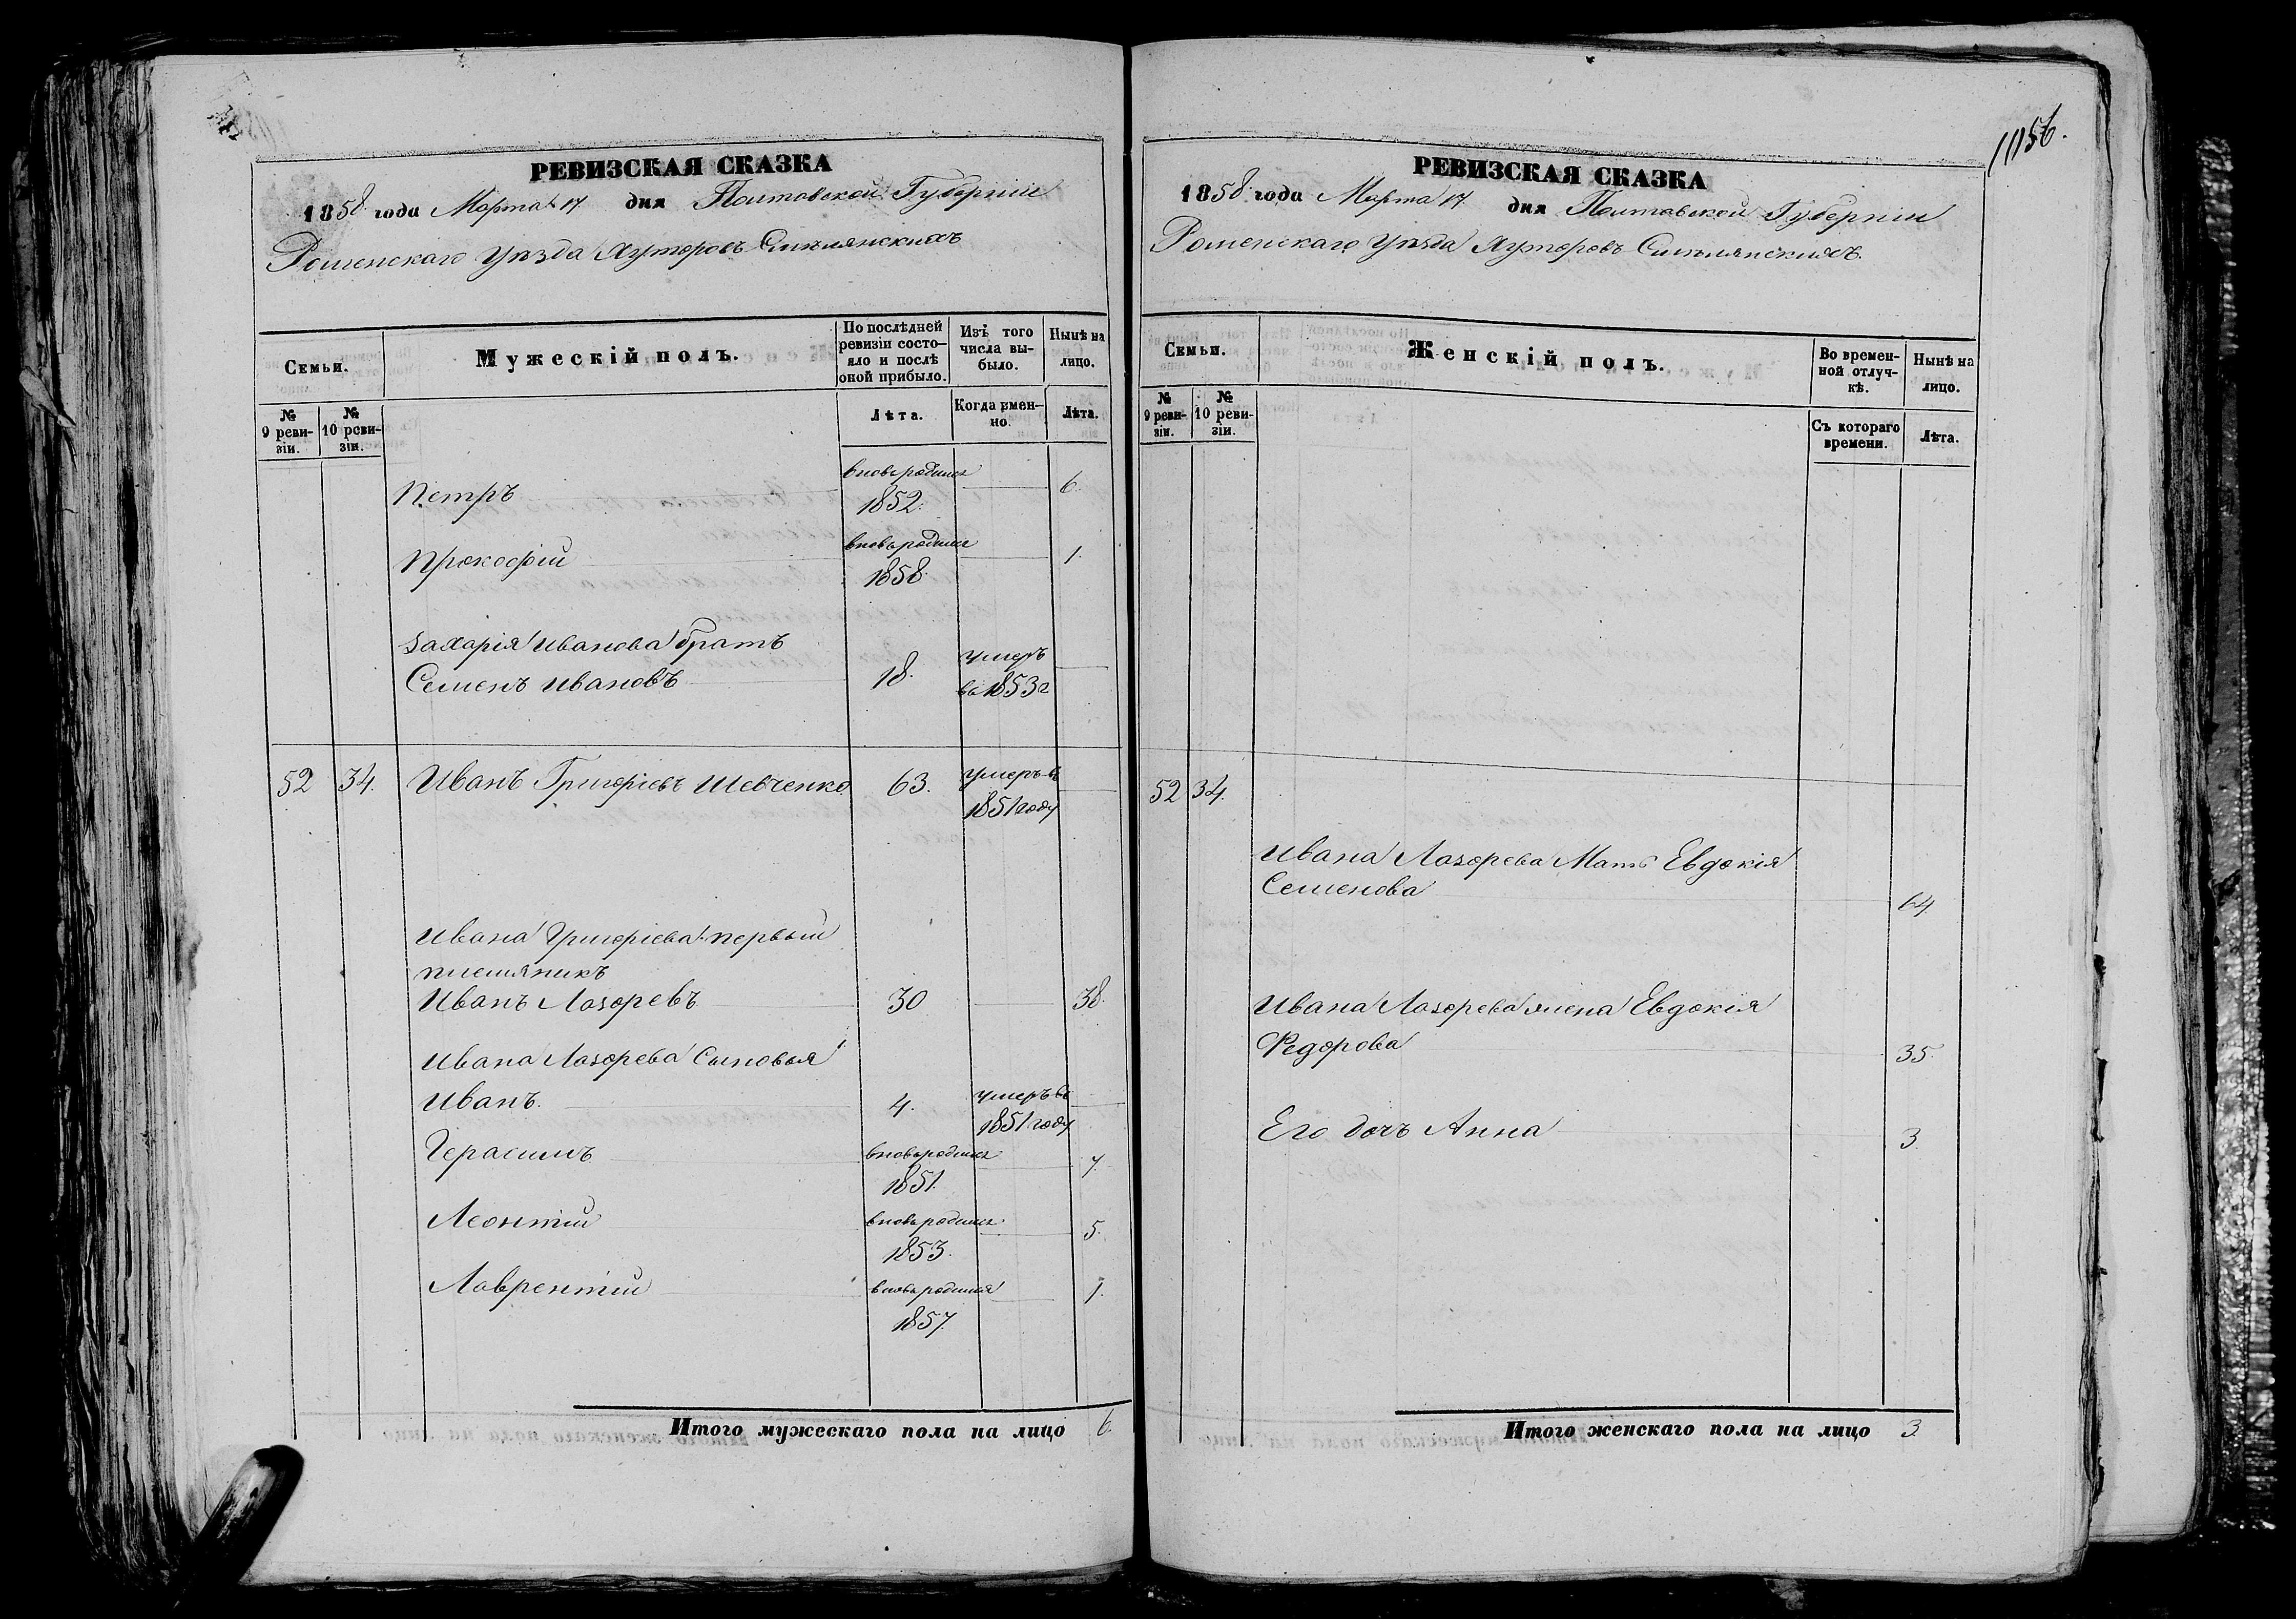 1056.
РЕВИЗСКАЯ СКАЗКА
1858 года Марта 17 дня Полтавской Губерніи
Роменскаго Уѣзда Хуторовъ Смѣлянскихъ
Семьи.
Мужескій полъ.
По послѣдней ревизіи состояло и послѣ оной прибыло.
Изъ того числа выбыло.
Нынѣ на лицо.
№ 9 ревизіи.
№ 10 ревизіи.
Лѣта.
Когда именно.
Лѣта.
Петръ вновь родился 1852. 6.
Прокофій вновь родился 1858. 1.
Захарія Иванова братъ
Семенъ Ивановъ 18. умеръ въ 1853 г
52 34. Иванъ Григоріевъ Шевченко 63. умеръ въ 1851 году
Ивана Григоріева первый
племянникъ
Иванъ Лазоревъ 30 38.
Ивана Лазорева Сыновья
Иванъ. 4. умеръ въ 1851 году
Герасимъ вновь родился 1851. 7
Леонтій вновь родился 1853. 5.
Лаврентій вновь родился 1857. 1.
Итого мужескаго пола на лицо 6.
РЕВИЗСКАЯ СКАЗКА
1858 года Марта 17 дня Полтавской Губерніи
Роменскаго Уѣзда Хуторовъ Смѣлянскихъ.
Семьи.
Женскій полъ.
Во временной отлучкѣ.
Нынѣ на лицо.
№ 9 ревизіи.
№ 10 ревизіи.
Съ котораго времени.
Лѣта.
52 34.
Ивана Лазорева Мать Евдокія
Семенова 64
Ивана Лазорева жена Евдокія
Федорова 35.
Его дочь Анна 3.
Итого женскаго пола на лицо 3.